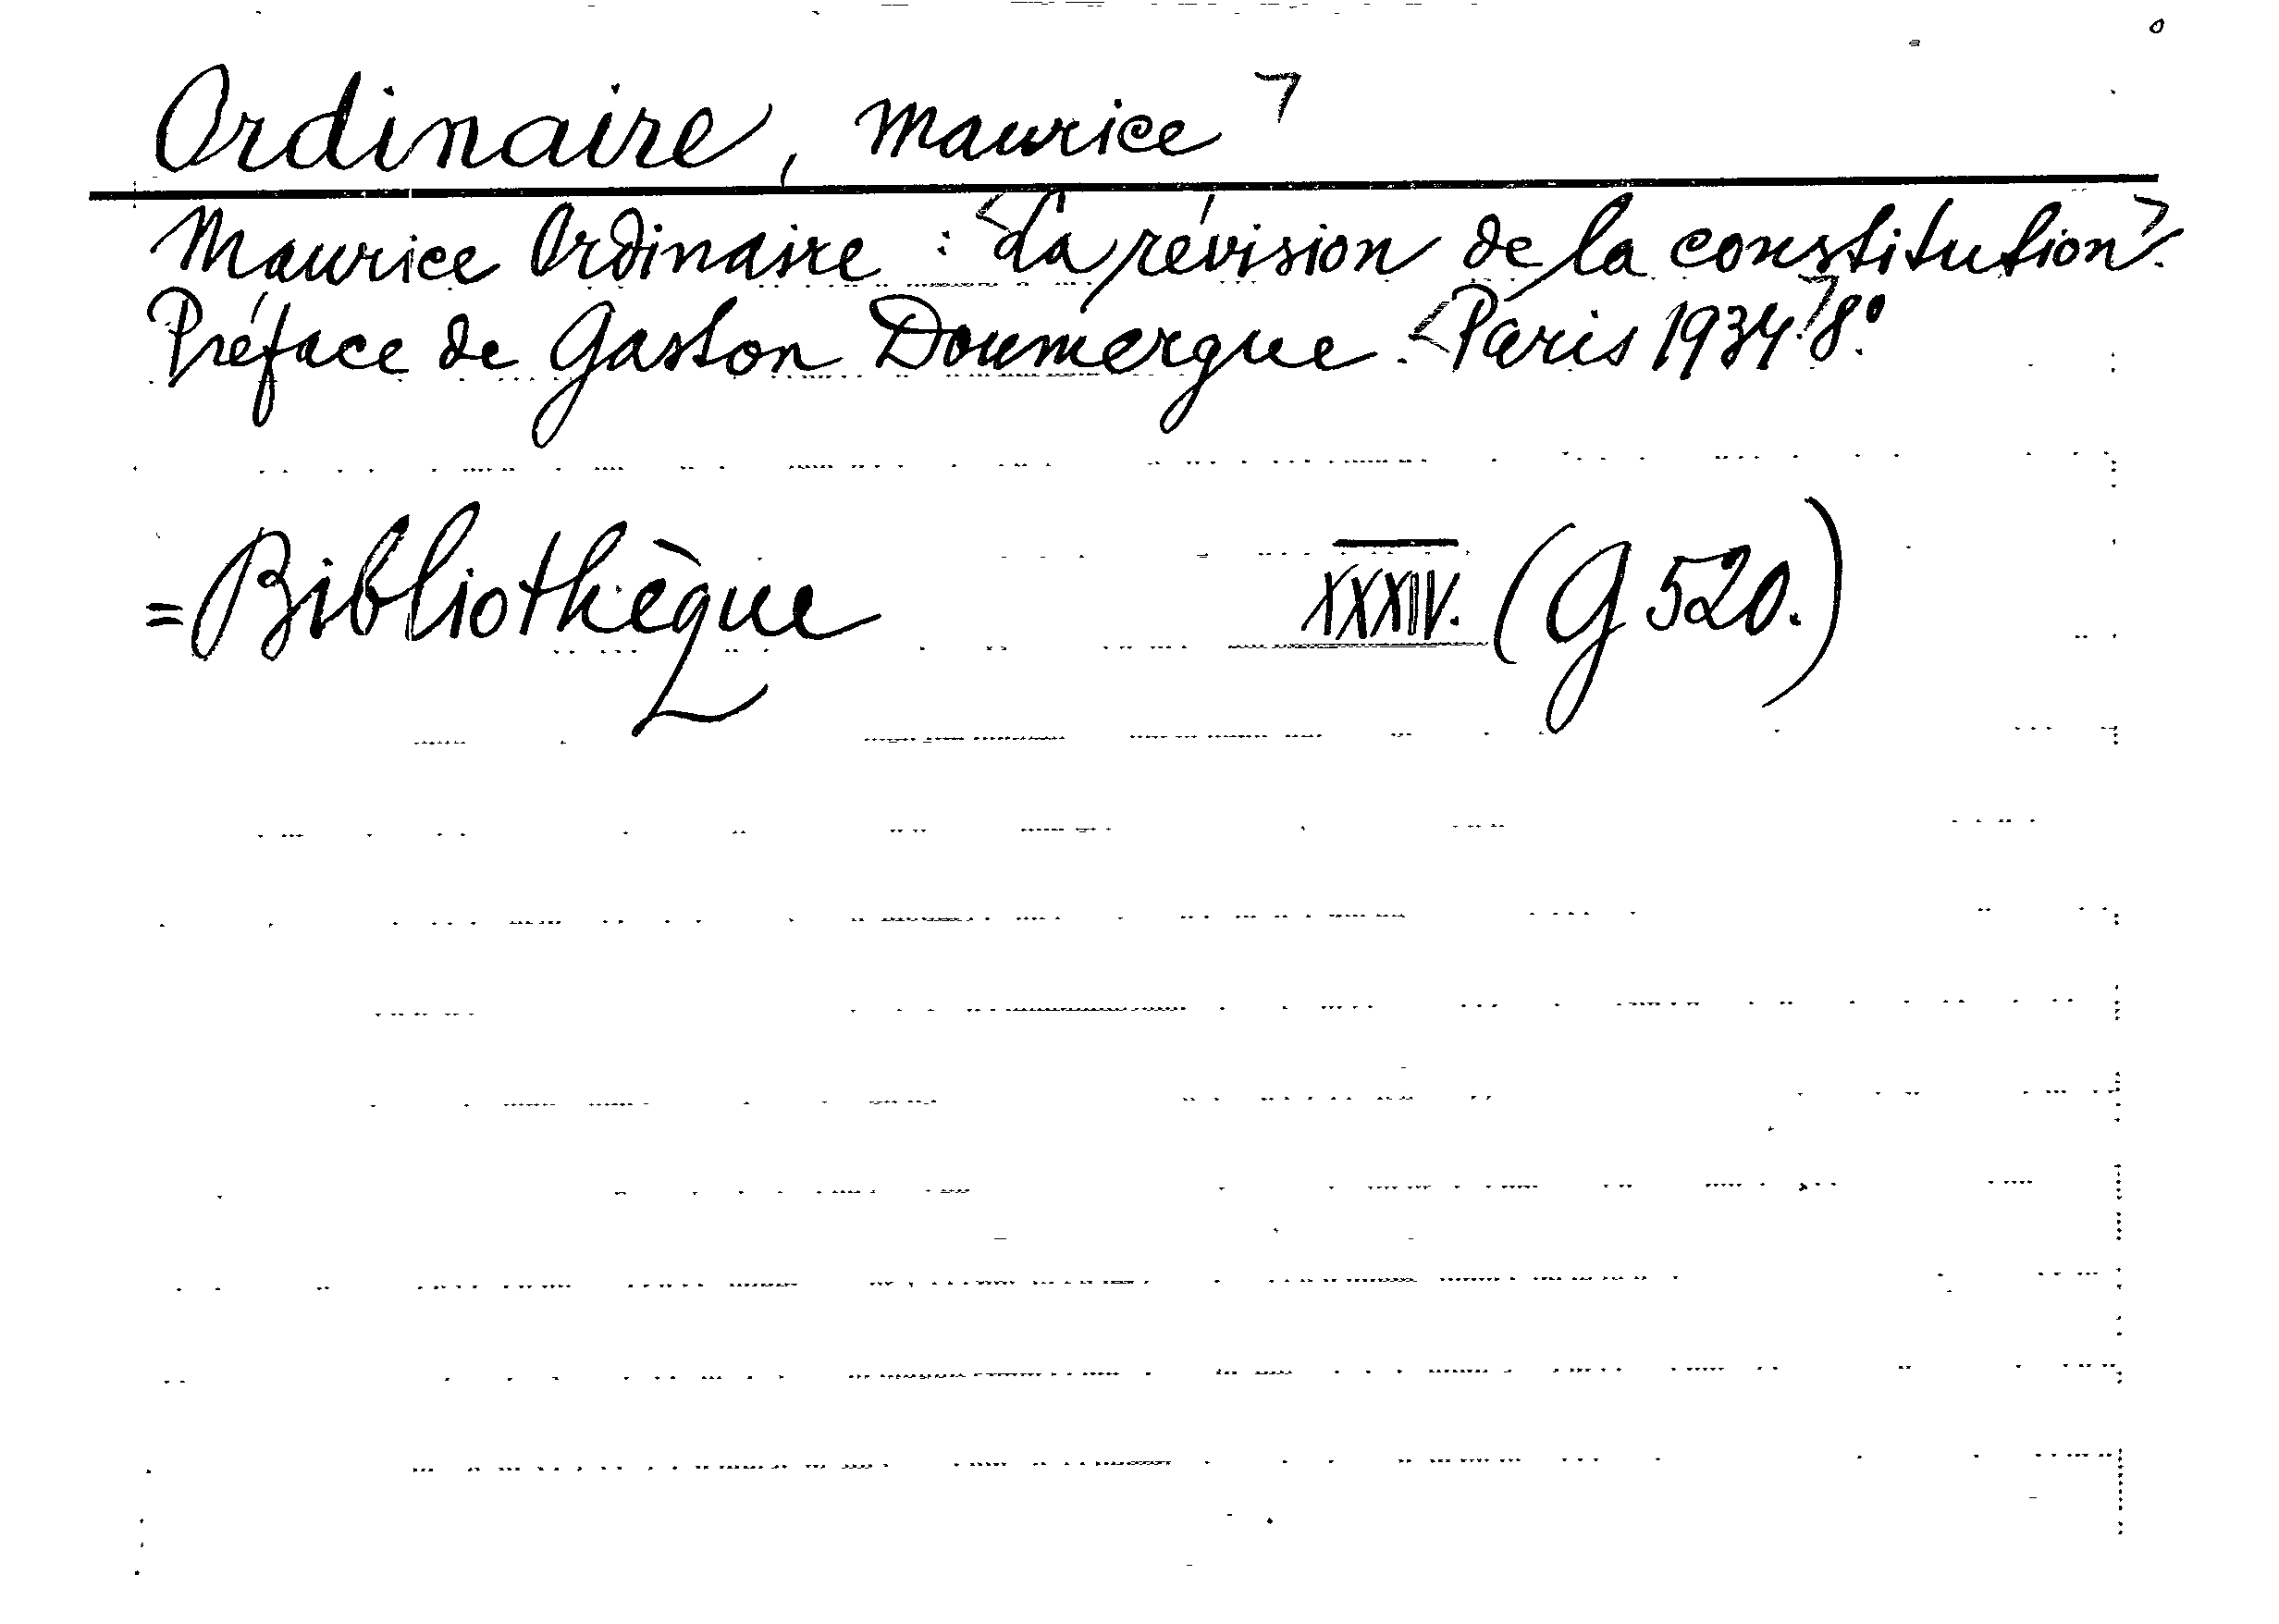 Ordinaire, Maurice
Maurice Ordinaire : La révision de la constitution.
Préface de Gaston Doumergue. Paris 1934. 8º.
= Bibliothèque XXXIV. (G 520.)